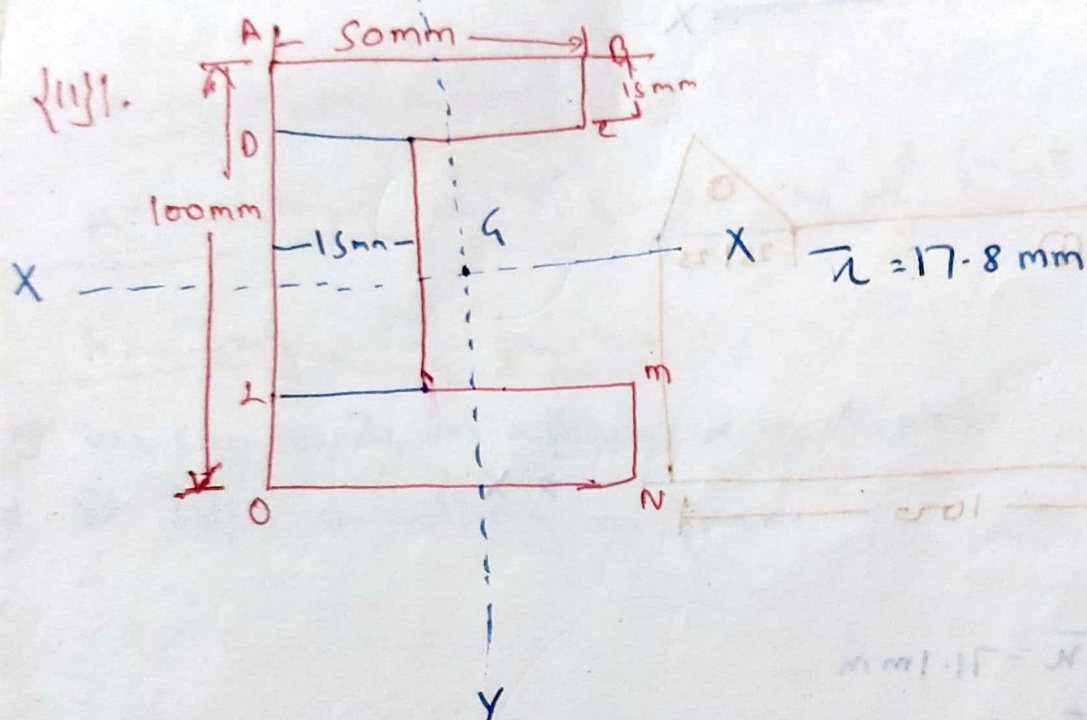 A 50mm B
{11}.
15mm
D C
100mm
15mm G
X X x̄ = 17.8 mm
L M
O N
Y